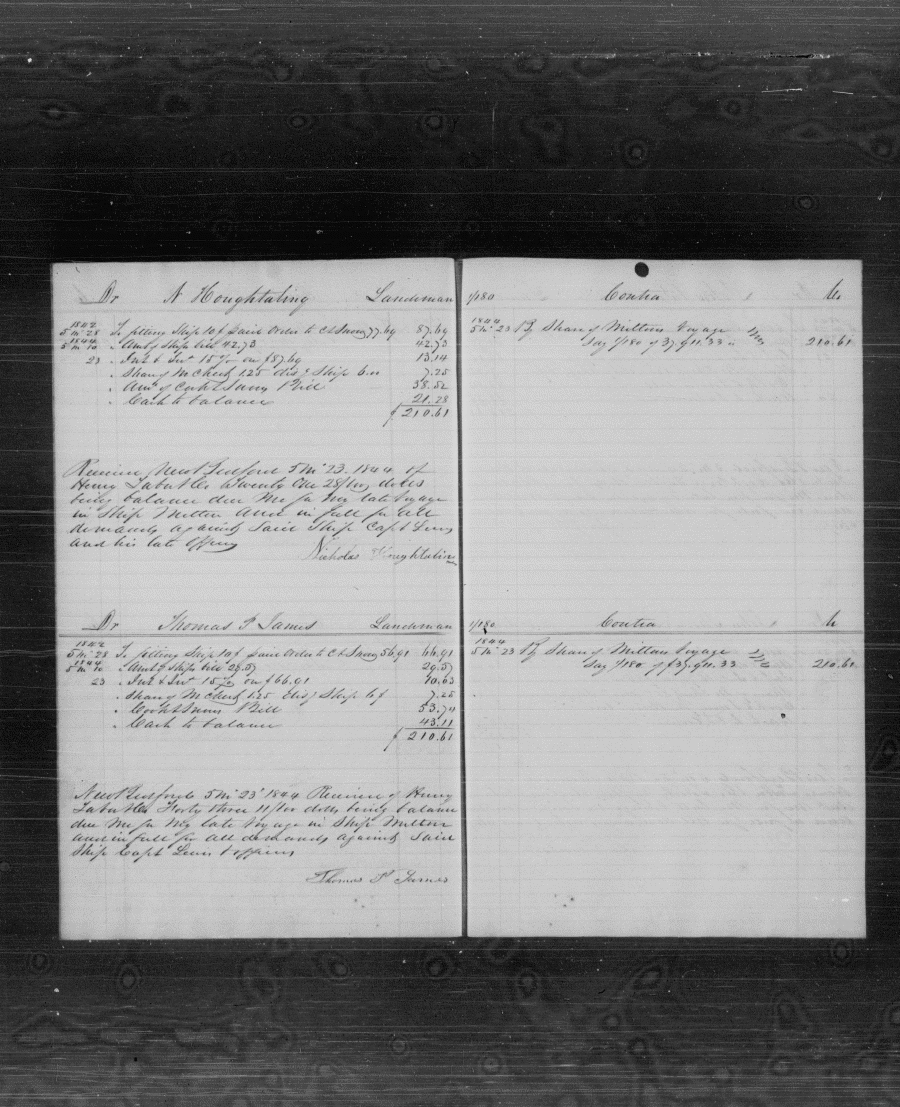 Dr N Houghtaling Landsman
1842
5 mo 28 To fitting Ship 10 $ Paid Order to C & Snow 77.69 87.69
1844
5 mo 10 " Amt of Ship bill 42.73 42.73
23 " Int & Ins 15 % on $87.69 13.14
" Share of McCheck 1.25 disg Ship 6.00 7.25
" Amt of Cook & Snows Bill 38.52
" Cash to balance 21.28
$ 210.61
Received New Bedford 5 mo 23. 1844 of
Henry Taber & Co twenty One 28/100 dolls
being balance due Me for My late Voyage
in Ship Milton And in full for all
demands against Said Ship Capt Lewis
and his late Officers
Nicholas Houghtaling
Dr Thomas P James Landsman
1842
5 mo 28 To fitting Ship 10 $ Paid Order to C & Snow 56.91 66.91
1844
5 mo 10 " Amt of Ships bill 29.57 29.57
23 " Int & Ins 15 % on $66.91 10.03
" Share of McCheck 1.25 disg Ship 6 $ 7.25
" Cook & Snows Bill 53.74
" Cash to balance 43.11
$ 210.61
New Bedford 5 mo 23 1844 Received of Henry
Taber & Co Forty three 11/100 dolls being balance
due Me for My late Voyage in Ship Milton
and in full for all demands against Said
Ship Capt Lewis & officers
Thomas P James
1/180 Contra Cr
1844
5 mo 23 By Share of Miltons Voyage
Say 1/180 of 37,911.33 210.61
1/180 Contra Cr
1844
5 mo 23 By Share of Miltons Voyage
Say 1/180 of $37,911.33 210.61